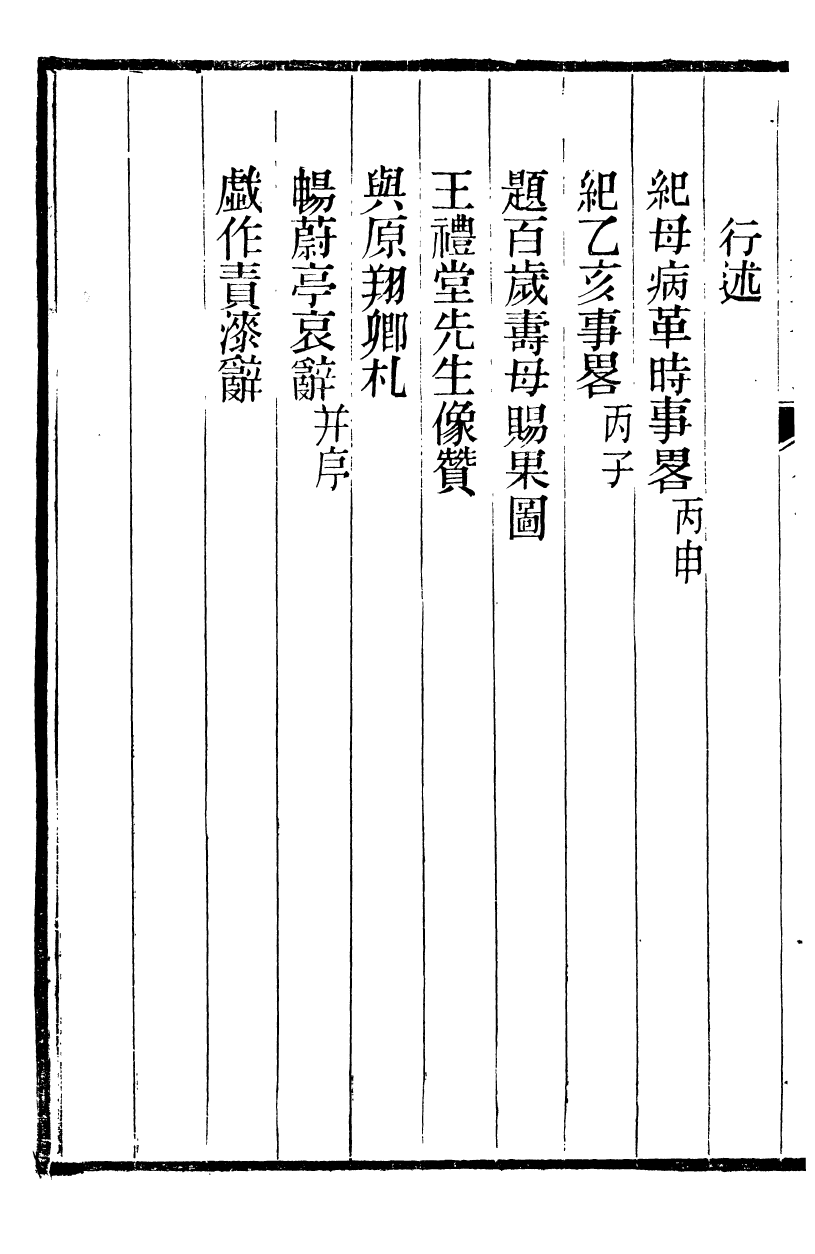 行述
紀母病革時事畧丙申
紀乙亥事畧丙子
題百歲壽母賜果圖
王禮堂先生像贊
與原翔卿札
暢蔚亭哀辭并序
戲作責漆辭